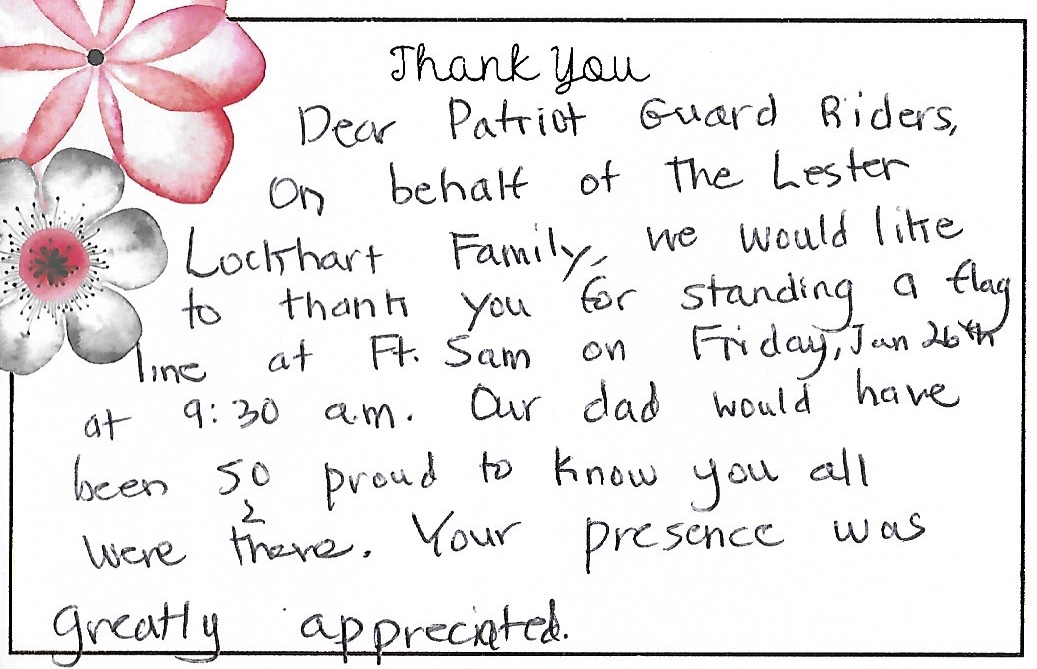 Thank You
Dear Patriot Guard Riders,
On behalf of the Lester
Lockhart Family, we would like
to thank you for standing a flag
line at Ft. Sam on Friday, Jan 26th
at 9:30 a.m. Our dad would have
been so proud to know you all
were there. Your presence was
greatly appreciated.